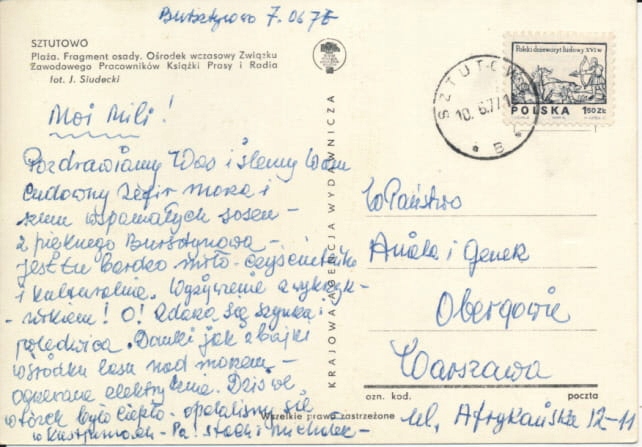 Bursztynowo 7.06 77
SZTUTOWO
Plaża. Fragment osady. Ośrodek wczasowy Związku
Zawodowego Pracowników Książki Prasy i Radia
fot. J. Siudecki
Moi Mili!
Pozdrawiamy Was i ślemy Wam
cudowny zefir morza i
szum wspaniałych sosen -
z pięknego Bursztynowa -
jest tu bardzo miło - czyściutko
i kulturalnie. Wyżywienie z wykrzyk-
- nikiem! O! Zdarza się szynka i
polędwica. Domki jak z bajki
w środku lasu nad morzem -
ogrzewane elektrycznie. Dziś we
wtorek było ciepło - opalaliśmy się
w kostiumach - Pa!
KRAJOWA AGENCJA WYDAWNICZA
Wszelkie prawa zastrzeżone
Polski drzeworyt ludowy XVI w
POLSKA 1,50 ZŁ
SZTUTOWO
10.6.77
B
W Państwo
Aniela i Genek
Obergowie
Warszawa
ozn. kod. poczta
ul. Afrykańska 12-11